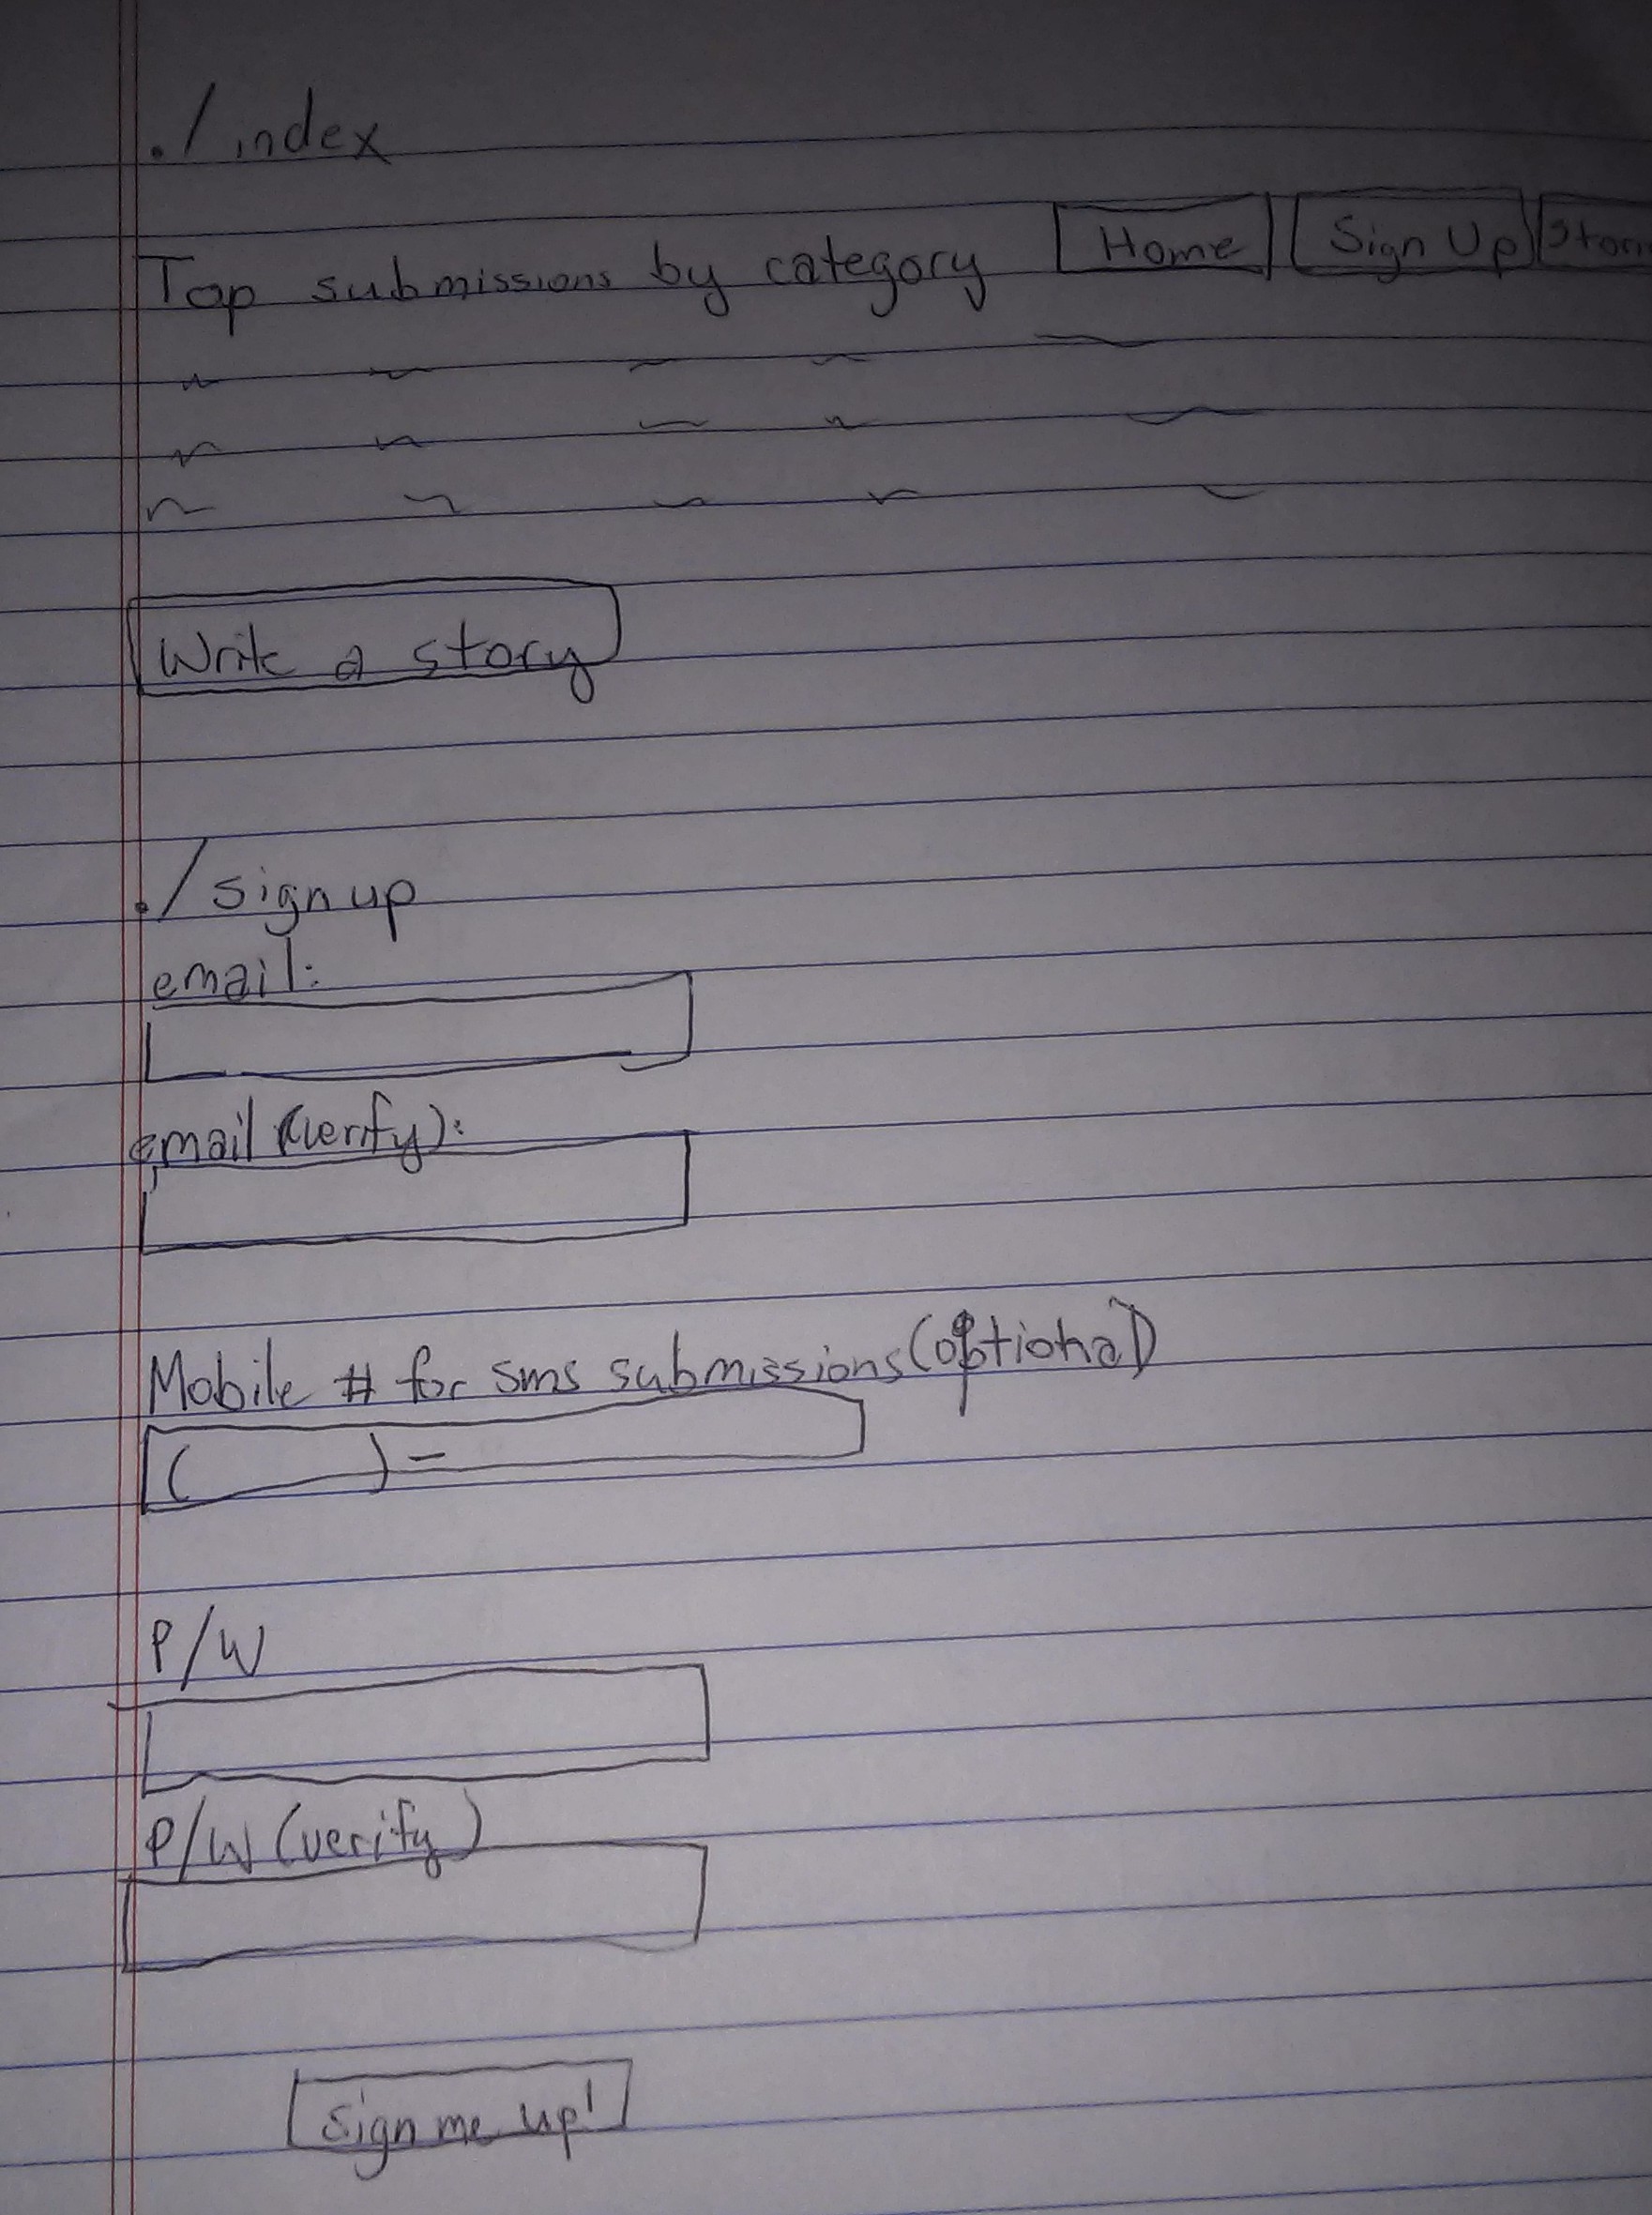 ./index
Top submissions by category Home Sign Up
Write a story
./signup
email:
email (verify):
Mobile # for sms submissions (optional)
( ) -
P/W
P/W (verify)
Sign me up!